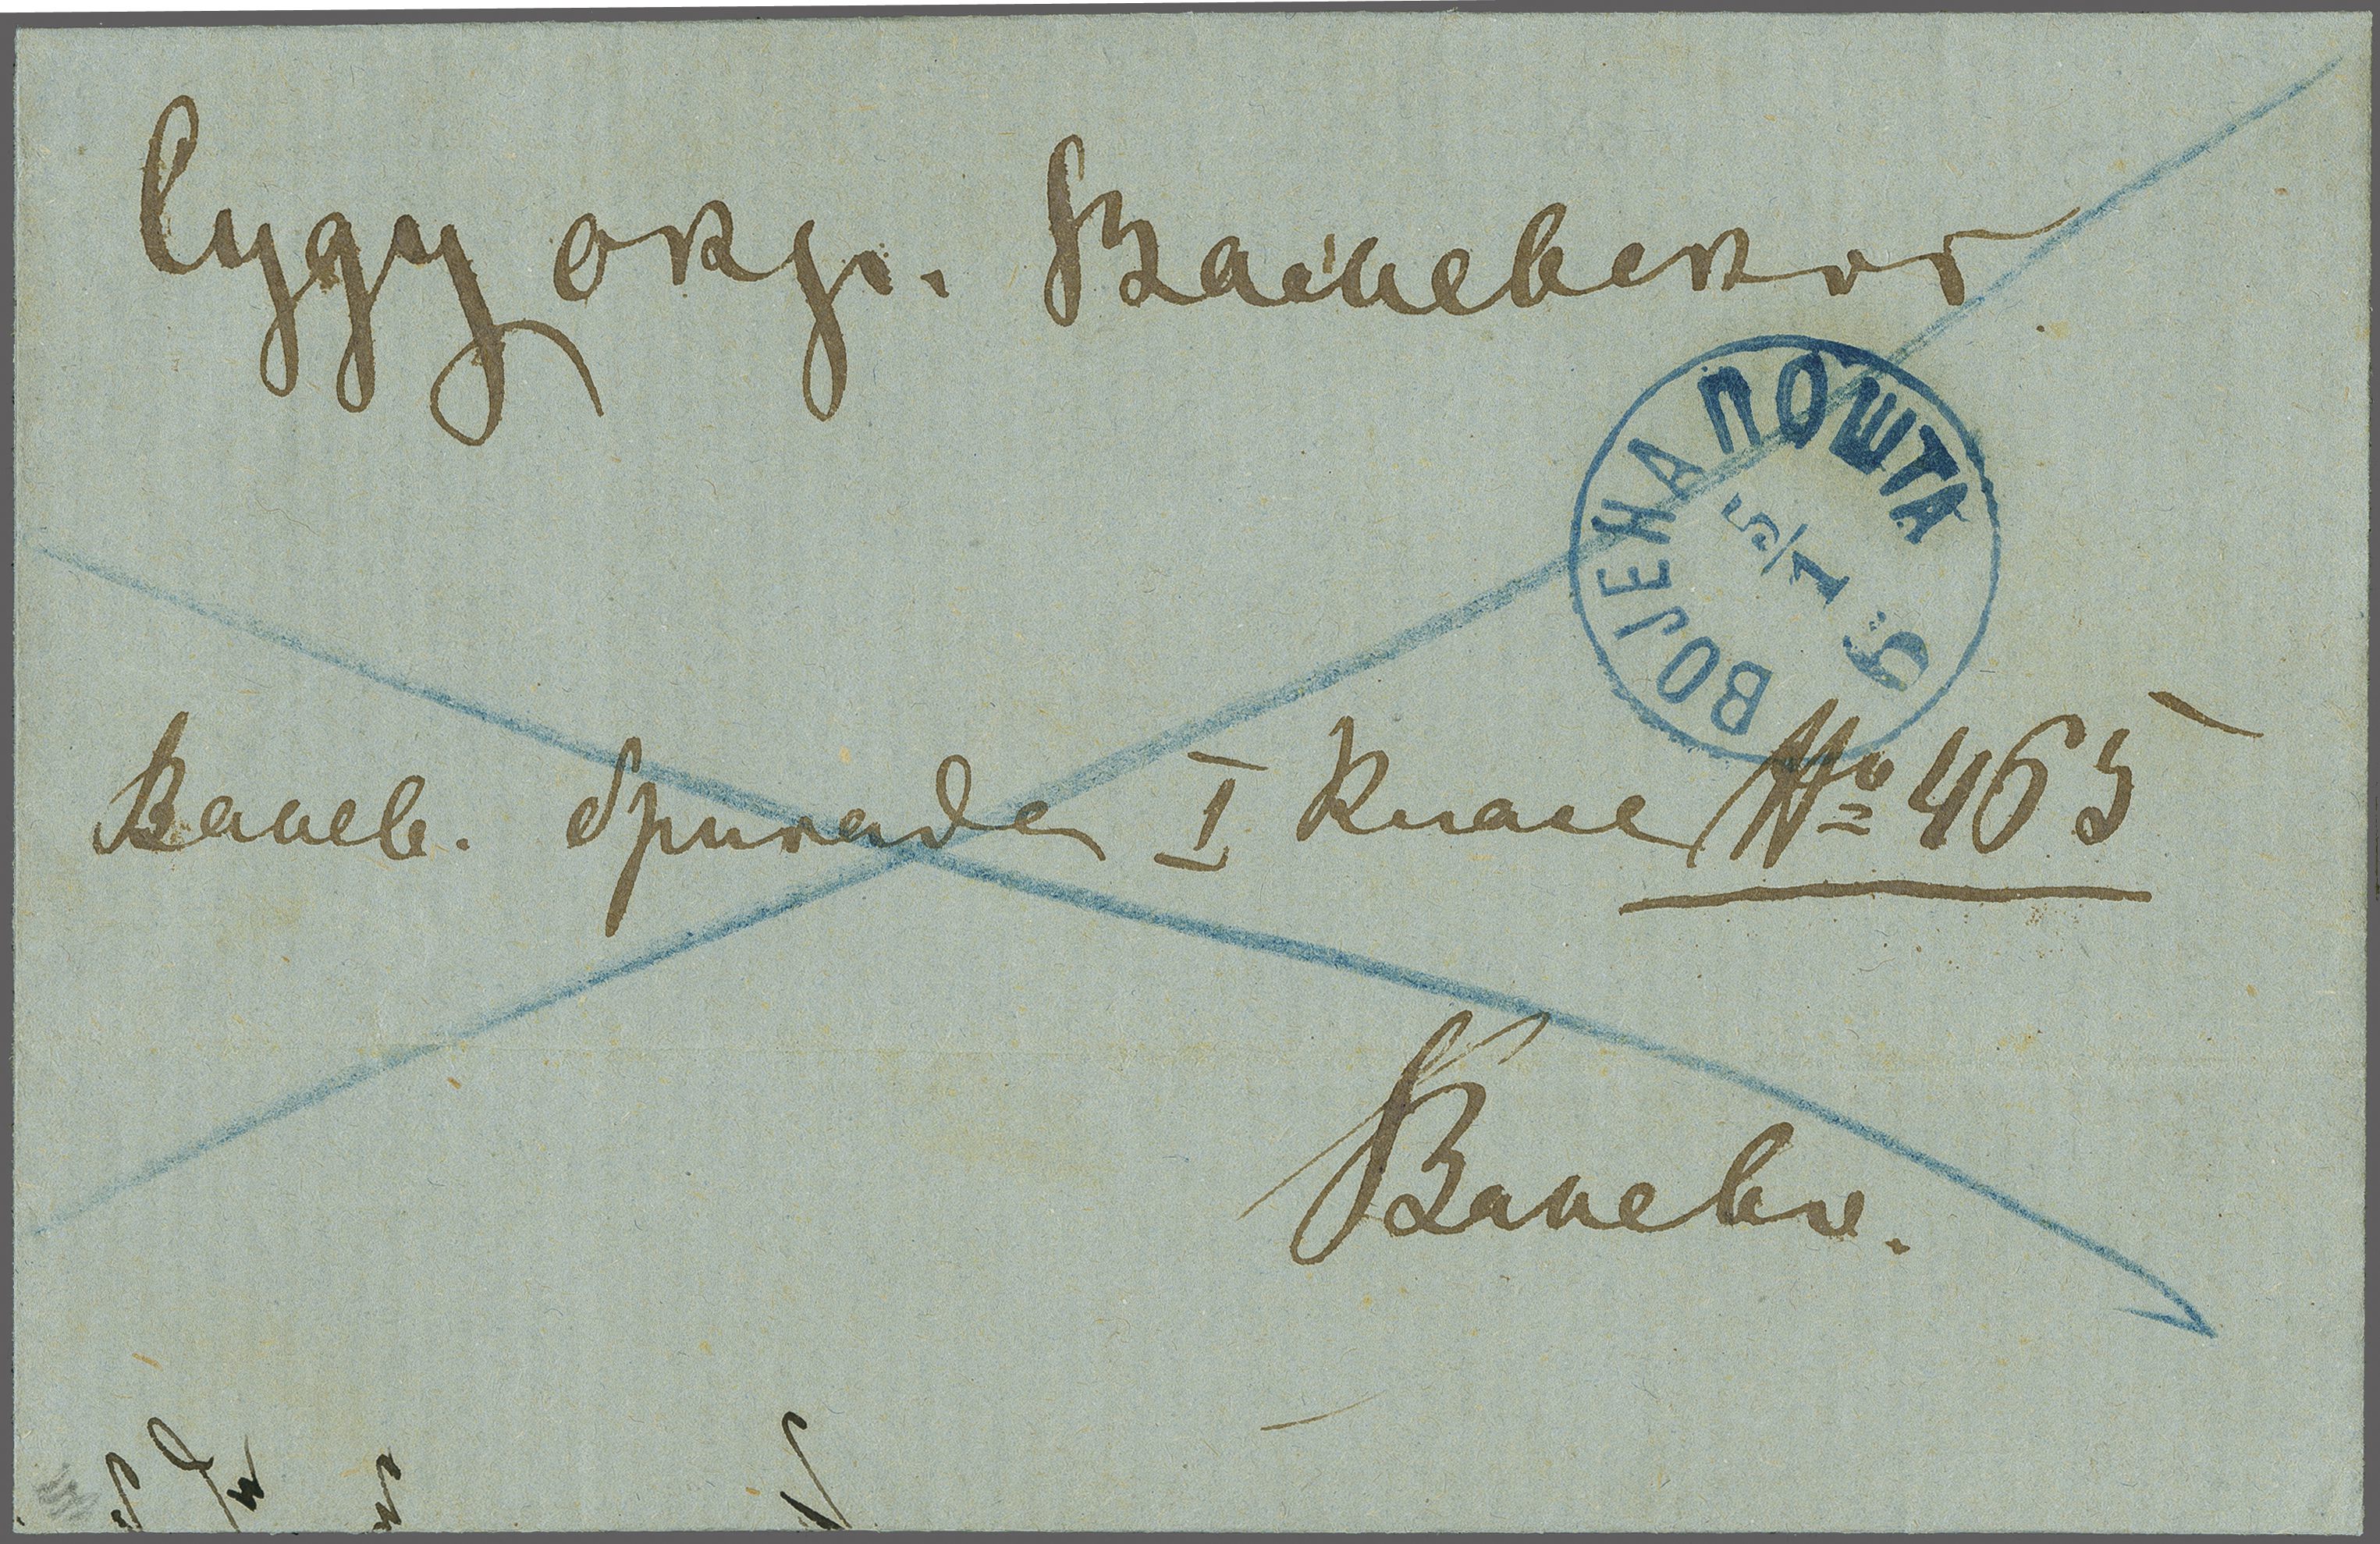 Суду окр. Ваљевског
ВОЈЕНА ПОШТА
5/1
5
Ваљев. бригаде I класе № 465
Ваљево.